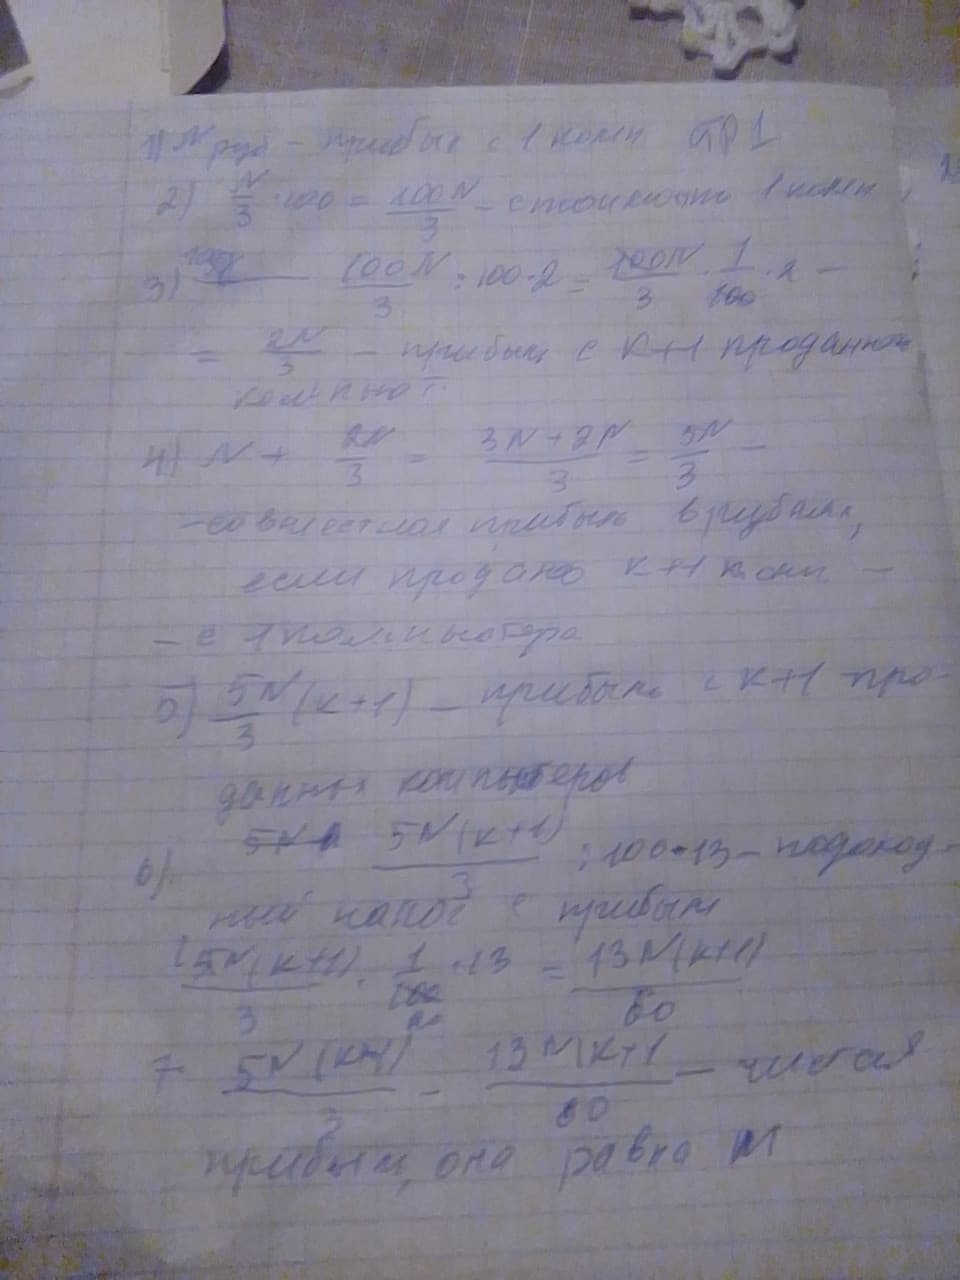 1) N руб - прибыл с 1 комп ПР1
2) N/3 · 100 = 100N/3 = стоимость 1 комп
3) 100N/3 : 100 · 2 = 100N/3 · 1/100 · 2 -
= 2N/3 - прибыл с K+1 проданном
компьют.
4) N + 2N/3 = 3N+2N/3 = 5N/3 -
- совместная прибыль в рублях,
если продано K+1 комп -
- с 1 компьютера
5) 5N/3 (K+1) - прибыль с K+1 про-
данных компьютеров
6) 5N(K+1)/3 : 100 · 13 - подоход-
ный налог с прибыли
5N(K+1)/3 · 1/100 · 13 = 13N(K+1)/60
7 5N(K+1)/3 - 13N(K+1/60 - чистая
прибыль, она равна M